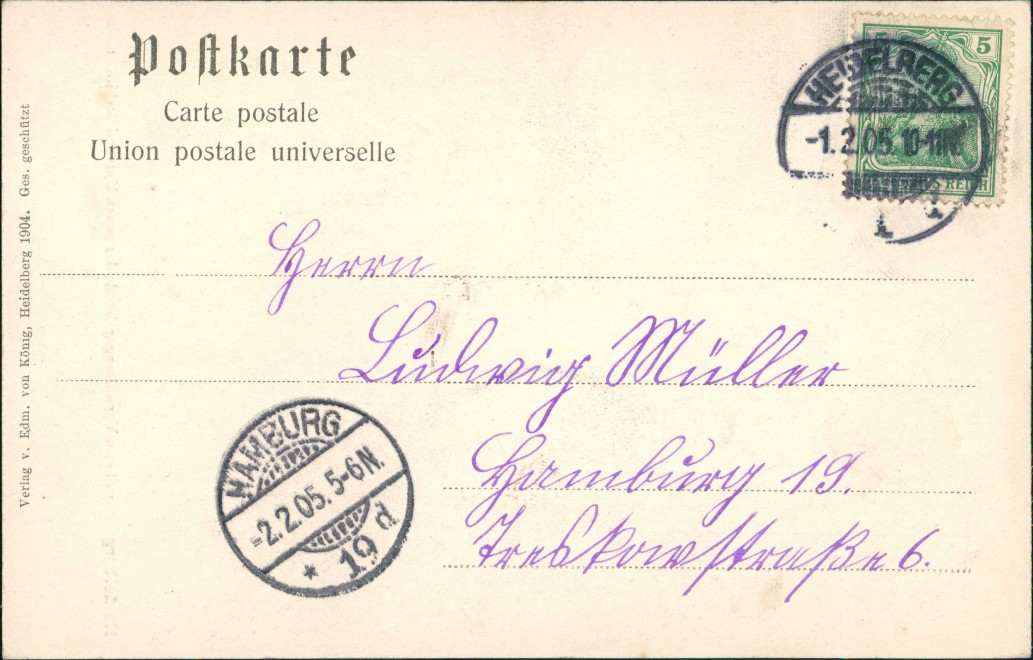 Postkarte
Carte postale
Union postale universelle
5 5
HEIDELBERG
-1.2.05. 10-11N.
1
REICH
Herrn
Ludwig Müller
Hamburg 19.
Treskowstraße 6.
HAMBURG
-2.2.05. 5-6N.
* 19 d
Verlag v. Edm. von König, Heidelberg 1904. Ges. geschützt